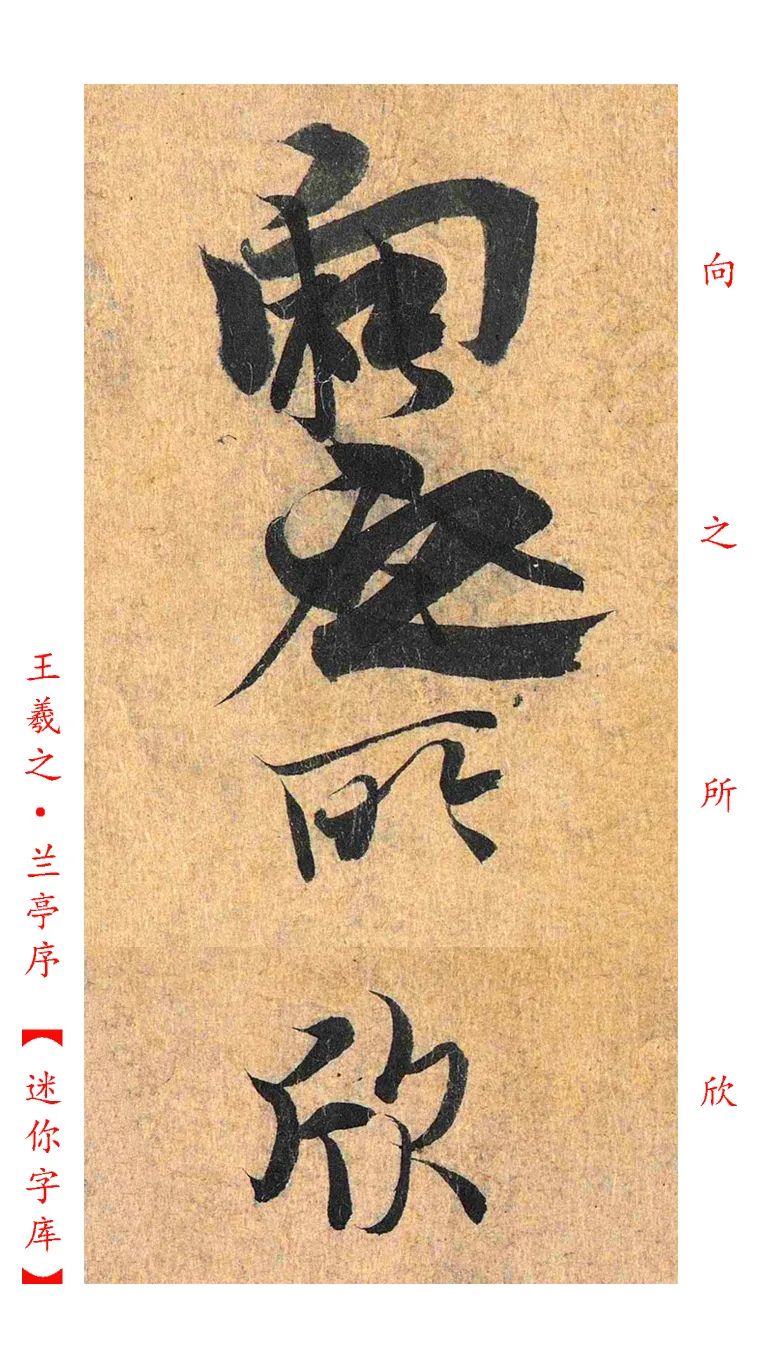 向之所欣
向之所欣
王羲之·兰亭序【迷你字库】